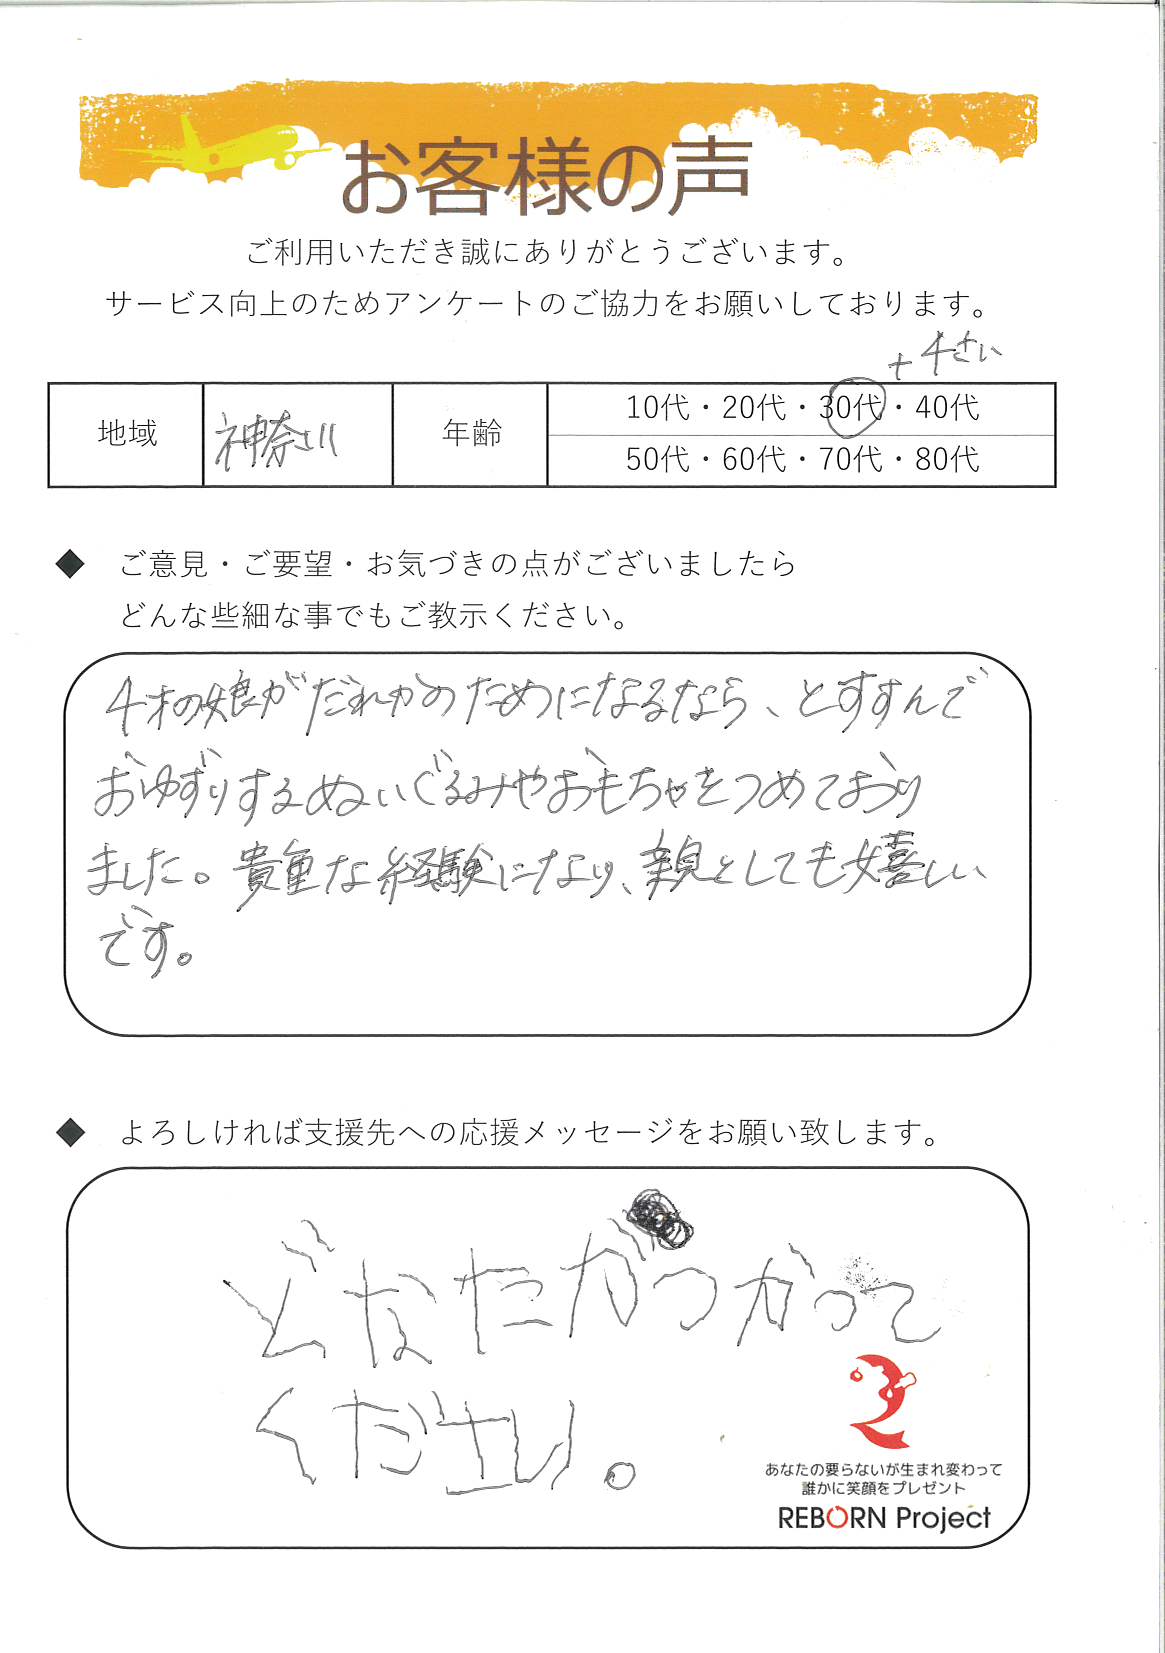 お客様の声
ご利用いただき誠にありがとうございます。
サービス向上のためアンケートのご協力をお願いしております。
+4さい
地域
神奈川
年齢
10代・20代・30代・40代
50代・60代・70代・80代
◆ ご意見・ご要望・お気づきの点がございましたら
どんな些細な事でもご教示ください。
4才の娘がだれかのためになるなら、とすすんで
おゆずりするぬいぐるみやおもちゃをつめており
ました。貴重な経験になり、親としても嬉しい
です。
◆ よろしければ支援先への応援メッセージをお願い致します。
どなたかつかって
ください。
あなたの要らないが生まれ変わって
誰かに笑顔をプレゼント
REBORN Project